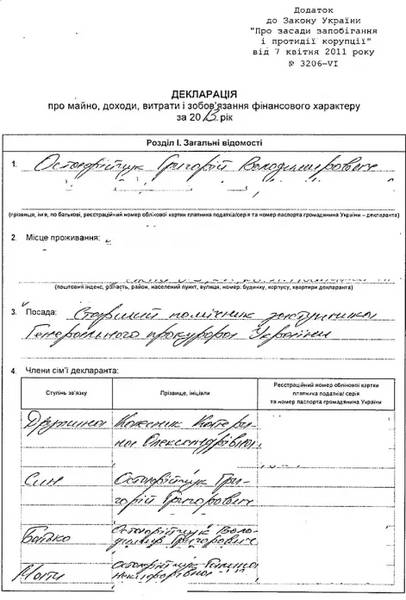 Додаток
до Закону України
"Про засади запобігання
і протидії корупції"
від 7 квітня 2011 року
№ 3206-VI
ДЕКЛАРАЦІЯ
про майно, доходи, витрати і зобов'язання фінансового характеру
за 2013 рік
Розділ І. Загальні відомості
1. Остапійчук Григорій Володимирович
(прізвище, ім'я, по батькові, реєстраційний номер облікової картки платника податків/серія та номер паспорта громадянина України – декларанта)
2. Місце проживання:
(поштовий індекс, область, район, населений пункт, вулиця, номер, будинку, корпусу, квартири декларанта)
3. Посада: Старший помічник заступника
Генерального прокурора України
4. Члени сім'ї декларанта:
Ступінь зв'язку Прізвище, ініціали Реєстраційний номер облікової картки
платника податків/ серія
та номер паспорта громадянина України
Дружина Катери-
на Олександрівна
Син Гри-
горій Григорович
Батько Воло-
димир Григорович
Мати